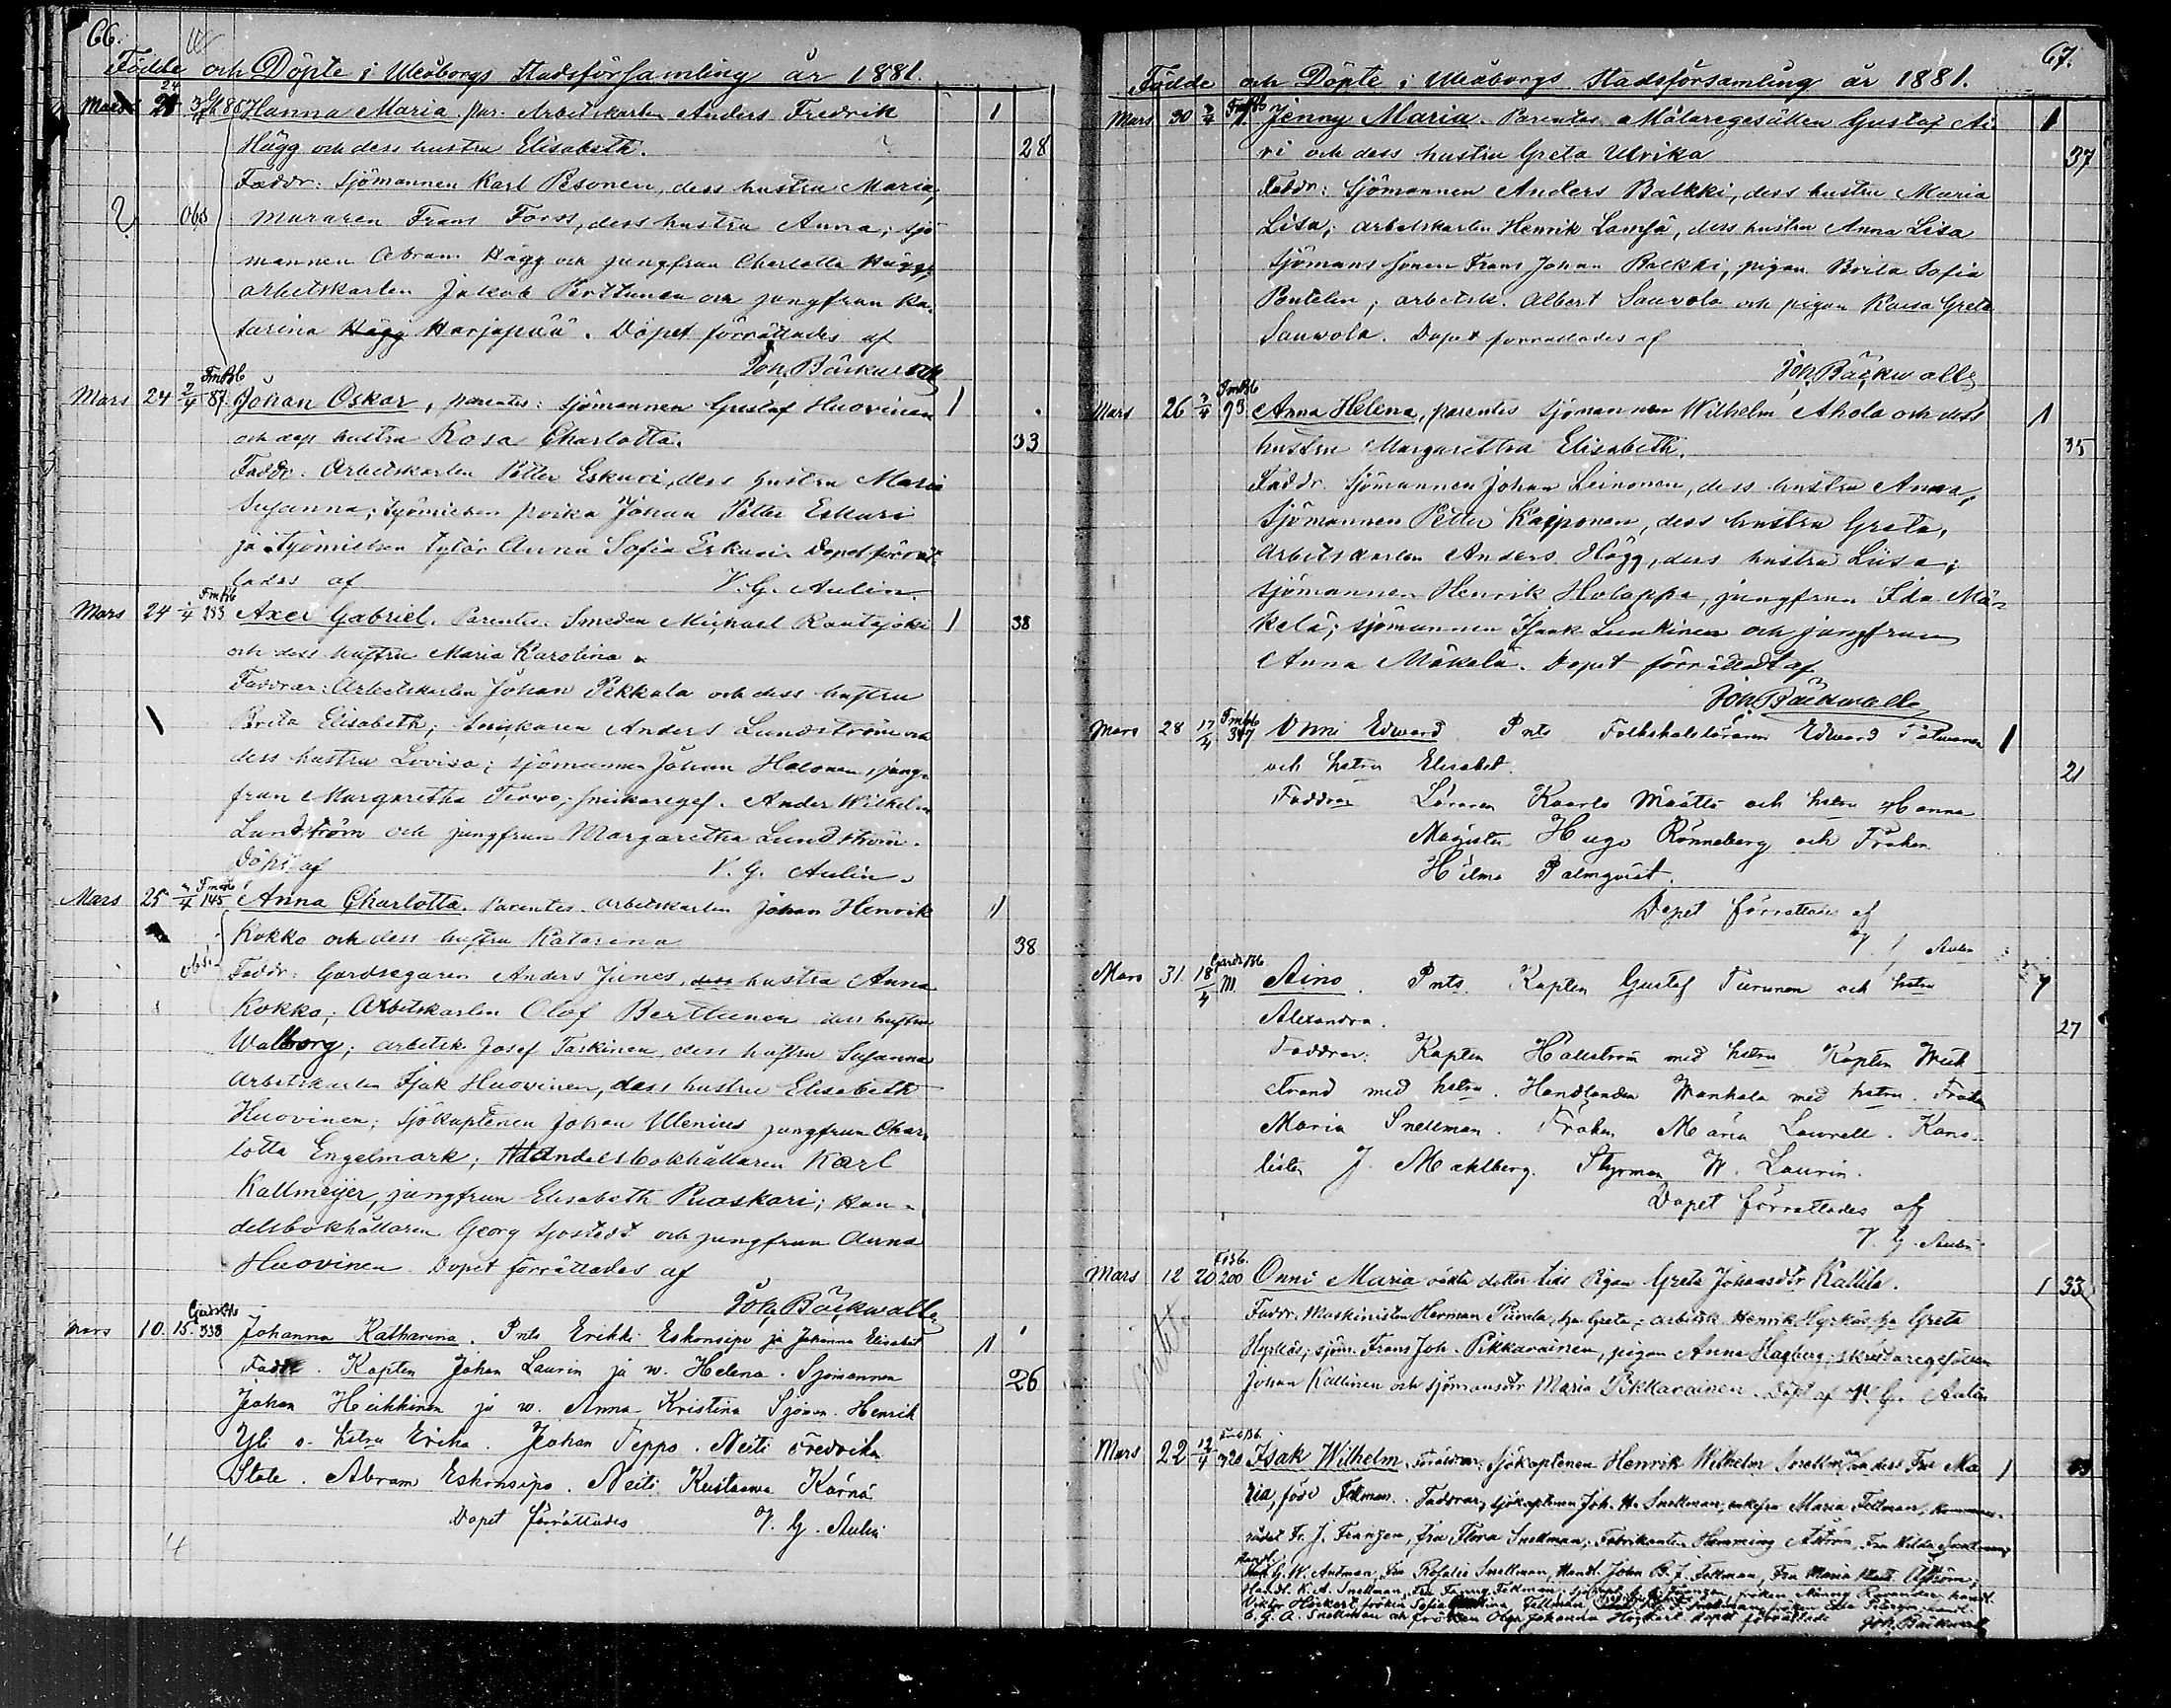 66.
Födde och Döpte i Uleåborgs Stadsförsamling år 1881.
Mars 24 Hanna Maria. par. Arbetskarlen Anders Fredrik 1
Hägg och dess hustru Elisabeth. 28
Faddr: Sjömannen Karl Pesonen, dess hustru Maria,
? Obs muraren Frans Forss, dess hustru Anna; sjö
mannen Abram Hägg och jungfrun Charlotta Hägg;
arbetskarlen Jakob Perttunen och jungfrun Ka-
tarina Hägg Harjapää. Döpet förrättades af
Joh. Bäckwall
Mars 24 2/4 FmBb 87. Johan Oskar, parentes: sjömannen Gustaf Huovinen 1
och dess hustru Kosa Charlotta. 33
Faddr. Arbetskarlen Petter Eskuri, dess hustru Maria
Susanna; työmiehen poika Johan Petter Eskuri
ja työmiehen tytär Anna Sofia Eskuri. Dopet förrät-
tades af V. G. Aulin
Mars 24 /4 FmBb 183 Axel Gabriel. Parentes. Smeden Michael Rautajoki 1 38
och dess hustru Maria Karolina.
Faddrar: Arbetskarlen Johan Pekkala och dess hustru
Brita Elisabeth; snickaren Anders Lundström och
dess hustru Lovisa; sjömannen Johan Halonen, jung-
frun Margaretha Tervo; snickaregef. Ander Wilhelm
Lundström och jungfrun Margaretha Lundström.
Döpt af V. G. Aulin.
Mars 25 /4 FmBb 145 Anna Charlotta. Parentes. Arbetskarlen Johan Henrik 1
Kokko och dess hustru Katarina 38
obs. Faddr: Gårdsegaren Anders Junes, dess hustru Anna
Kokko; Arbetskarlen Olof Berttunen dess hustru
Walborg; arbetsk. Josef Taskinen, dess hustru Susanna
Arbetskarlen Isak Huovinen, dess hustru Elisabeth
Huovinen; Sjökaptenen Johan Ulenius jungfrun Char-
lotta Engelmark; Handelsbokhållaren Karl
Kallmeijer, jungfrun Elisabeth Ruaskari; Han-
delsbokhållaren Georg Sjöstedt och jungfrun Anna
Huovinen. Dopet förrättades af
Joh. Bäckwall
Mars 10. 15. 338 Johanna Katharina. Pnts Erikki Eskonsipo ja Johanna Elisabet 1
Faddr. Kapten Johan Laurin ja w. Helena. Sjömannen 26
Johan Heikkinen ja w. Anna Kristina Sjöman. Henrik
Yli o. hstru Erika. Johan Seppo. Neiti Fredrika
Stole. Abram Eskonsipo. Neiti Kustaava Kärnä
Dopet förrättades V. G. Aulin
67.
Födde och Döpte i Uleåborgs Stadsförsamling år 1881.
Mars 30 /4 FmBb Jenny Maria. Parentes. Målaregesällen Gustaf Ai- 1
ri och dess hustru Greta Ulrika 37
Faddr: Sjömannen Anders Balkki, dess hustru Maria
Lisa; arbetskarlen Henrik Lamsä, dess hustru Anna Lisa
Sjömans sonen Frans Johan Balkki, pigan Brita Sofia
Pantelin; arbetsk. Albert Sauvola och pigan Kaisa Greta
Sauvola. Dopet förrättades af
Joh. Bäckwall
Mars 26 /4 FmBb 93. Anna Helena, parentes sjömannen Wilhelm Ahola och dess 1
hustru Margarettha Elisabeth. 35
Faddr. Sjömannen Johan Leinonen, dess hustru Anna,
Sjömannen Petter Kaipponen, dess hustru Greta,
Arbetskarlen Anders Hägg, dess hustru Liisa;
sjömannen Henrik Holappa, jungfrun Ida Mä-
kelä; sjömannen Isaak Lunkinen och jungfrun
Anna Mäkelä. Dopet förrättadt af
Joh. Bäckwall
Mars 28 17/4 FmBb 347 Onni Edward Pnts Folkskoleläraren Edward Tolwanen 1
och hstru Elisabet. 21
Faddrar Läraren Kaarlo Määttä och hstru Hanna
Magister Hugo Rönneberg och Fröken
Hilma Palmquist.
Dopet förrättades af
V. G. Aulin
Mars 31. 18/4 Gards Bb Aino. Pnts. Kapten Gustaf Turunen och hstru 1
Alexandra. 27
Faddrar: Kapten Hällström med hstru Kapten West-
strand med hstru. Handlanden Wanhala med hstru. Fröken
Maria Snellman. Fröken Maria Laurell. Kans-
listen J. Mahlberg. Styrman W. Laurin.
Dopet förrättades af
V. G. Aulin
Mars 12 20 200 Onni Maria oäkta dotter till Pigan Greta Johansdtr Kallila. 1 33
Faddr. Maskinisten Herman Pietola, hu Greta; arbetsk Henrik Hyrkäs hu Greta
Hyrkäs; sjöm. Frans Joh. Pikkarainen, pigan Anna Hagberg; skräddaregesällen
Johan Kallinen och sjömansdtr Maria Pikkarainen. Döpt af V. G. Aulin
oäkta
Mars 22 12/4 Isak Wilhelm. Föräldrar: Sjökaptenen Henrik Wilhelm Snellman och dess Fru Ma 1
ria, född Fellman. Faddrar, sjökaptenen Joh. H. Snellman, enkefru Maria Fellman, Kommerse-
rådet Fr. J. Franzen, fru Flora Snellman; Fabrikanten Hemming Åström, Fru Hilda Snellman;
Handl. G. W. Andman, fru Rosalie Snellman, Handl. John B. J. Fellman, Fru Maria Åström;
Handl. K. A. Snellman, Fru Fanny Fellman;
Viktor Höckert, fröken Sofia Fellman
C. G. A. Snellman och fröken Olga Johanna Högkert. Dopet förrättade Joh. Bäckwall